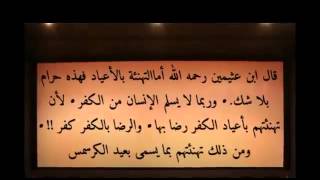 قال ابن عثيمين رحمه الله أماالتهنئة بالأعياد فهذه حرام
بلا شك.• وربما لا يسلم الإنسان من الكفر • لأن
تهنئتهم بأعياد الكفر رضا بها• والرضا بالكفر كفر !!•
ومن ذلك تهنئتهم بما يسمى بعيد الكرسمس